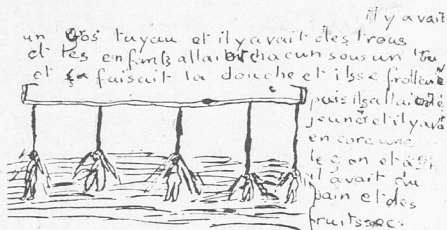 il y avait
un gos tuyau et il y avait des trous
et les enfants allait chacun sous un trou
et sa faisait la douche et il se frollent
puis ils allait dé
jeuner et il y avait
encore une
leçon et
il avait du
pain et des
fruits sec.